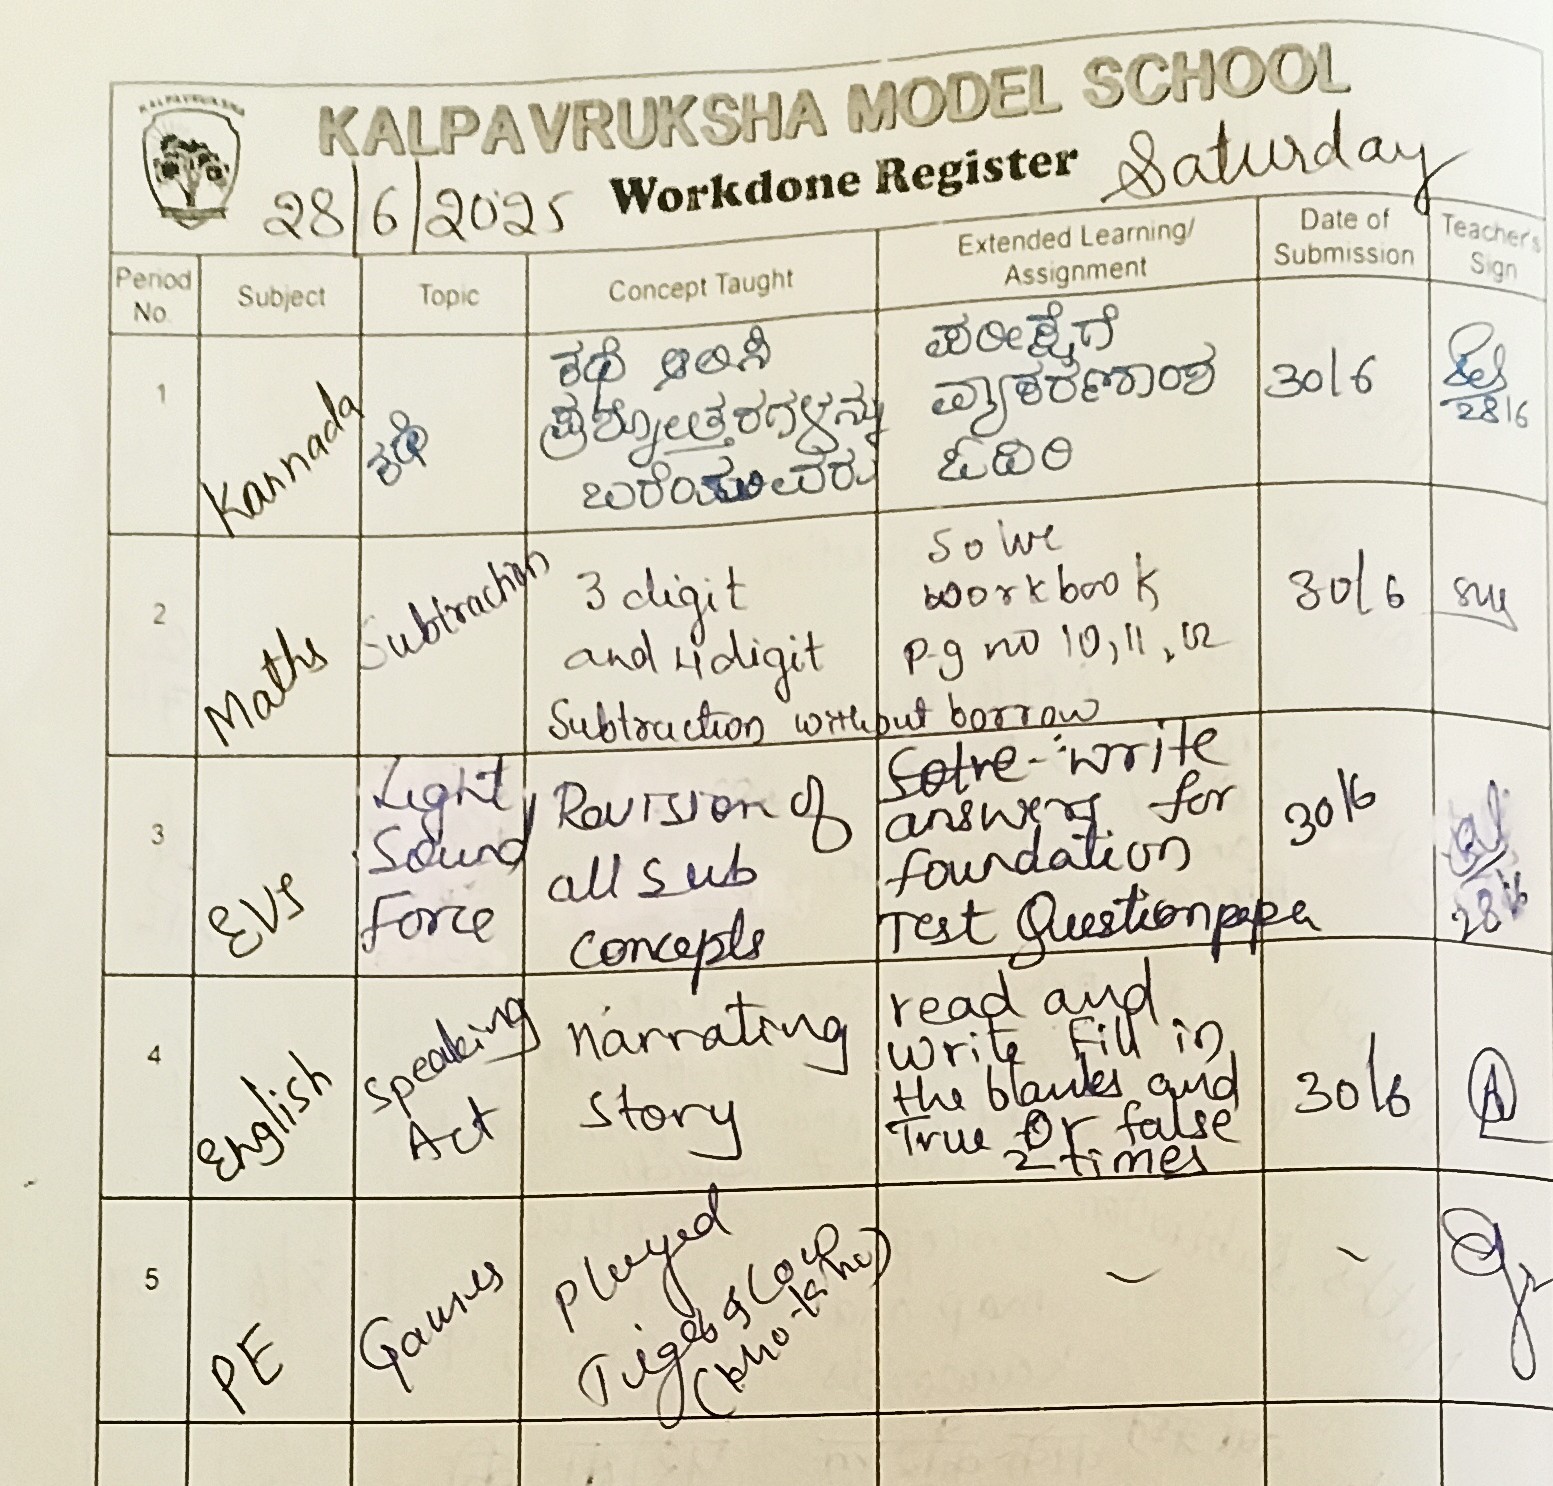 KALPAVRUKSHA
KALPAVRUKSHA MODEL SCHOOL
28/6/2025 Workdone Register Saturday
Period No. Subject Topic Concept Taught Extended Learning/ Assignment Date of Submission Teacher's Sign
1
Kannada
ಕಥೆ
ಕಥೆ ಆಲಿಸಿ
ಪ್ರಶ್ನೋತ್ತರಗಳನ್ನು
ಬರೆಯುವರು
ಪರೀಕ್ಷೆಗೆ
ವ್ಯಾಕರಣಾಂಶ
ಓದಿರಿ
30/6
28/6
2
Maths
Subtraction
3 digit
and 4 digit
Subtraction without borrow
Solve
workbook
p.g no 10, 11, 12
30/6
3
EVS
Light,
Sound
Force
Revision of
all Sub
concepts
Solve - write
answers for
foundation
Test Questionpaper
30/6
28/6
4
English
Speaking
Act
Narrating
story
read and
write fill in
the blanks and
True or false
2 times
30/6
5
PE
Games
played
Tiger & Cow
(kho-kho)